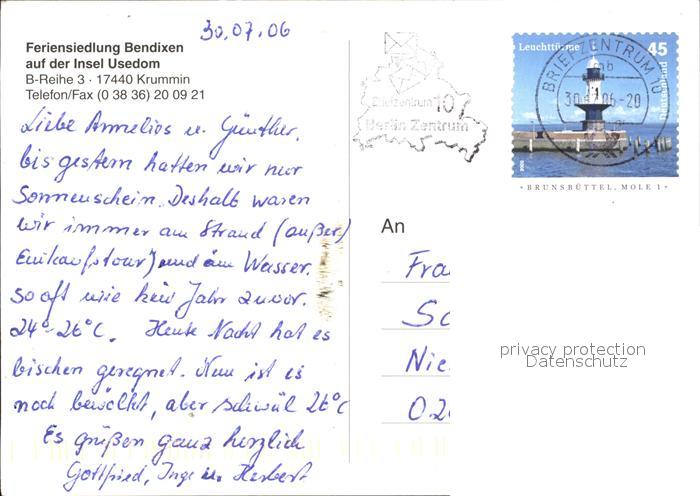 30.07.06
Feriensiedlung Bendixen
auf der Insel Usedom
B-Reihe 3 · 17440 Krummin
Telefon/Fax (0 38 36) 20 09 21
Liebe Annelies u. Günther,
bis gestern hatten wir nur
Sonnenschein. Deshalb waren
wir immer am Strand (außer
Einkaufstour) und im Wasser.
so oft wie kein Jahr zuvor.
24°-26°C. Heute Nacht hat es
bischen geregnet. Nun ist es
noch bewölkt, aber schwül 26°C
Es grüßen ganz herzlich
Gottfried, Inge u. Herbert
Briefzentrum 10
Berlin Zentrum
Leuchttürme 45
Deutschland
BRIEFZENTRUM 10
mb
30.07.06-20
BRUNSBÜTTEL, MOLE 1
An
Fra
Sc
Nie
02
privacy protection
Datenschutz